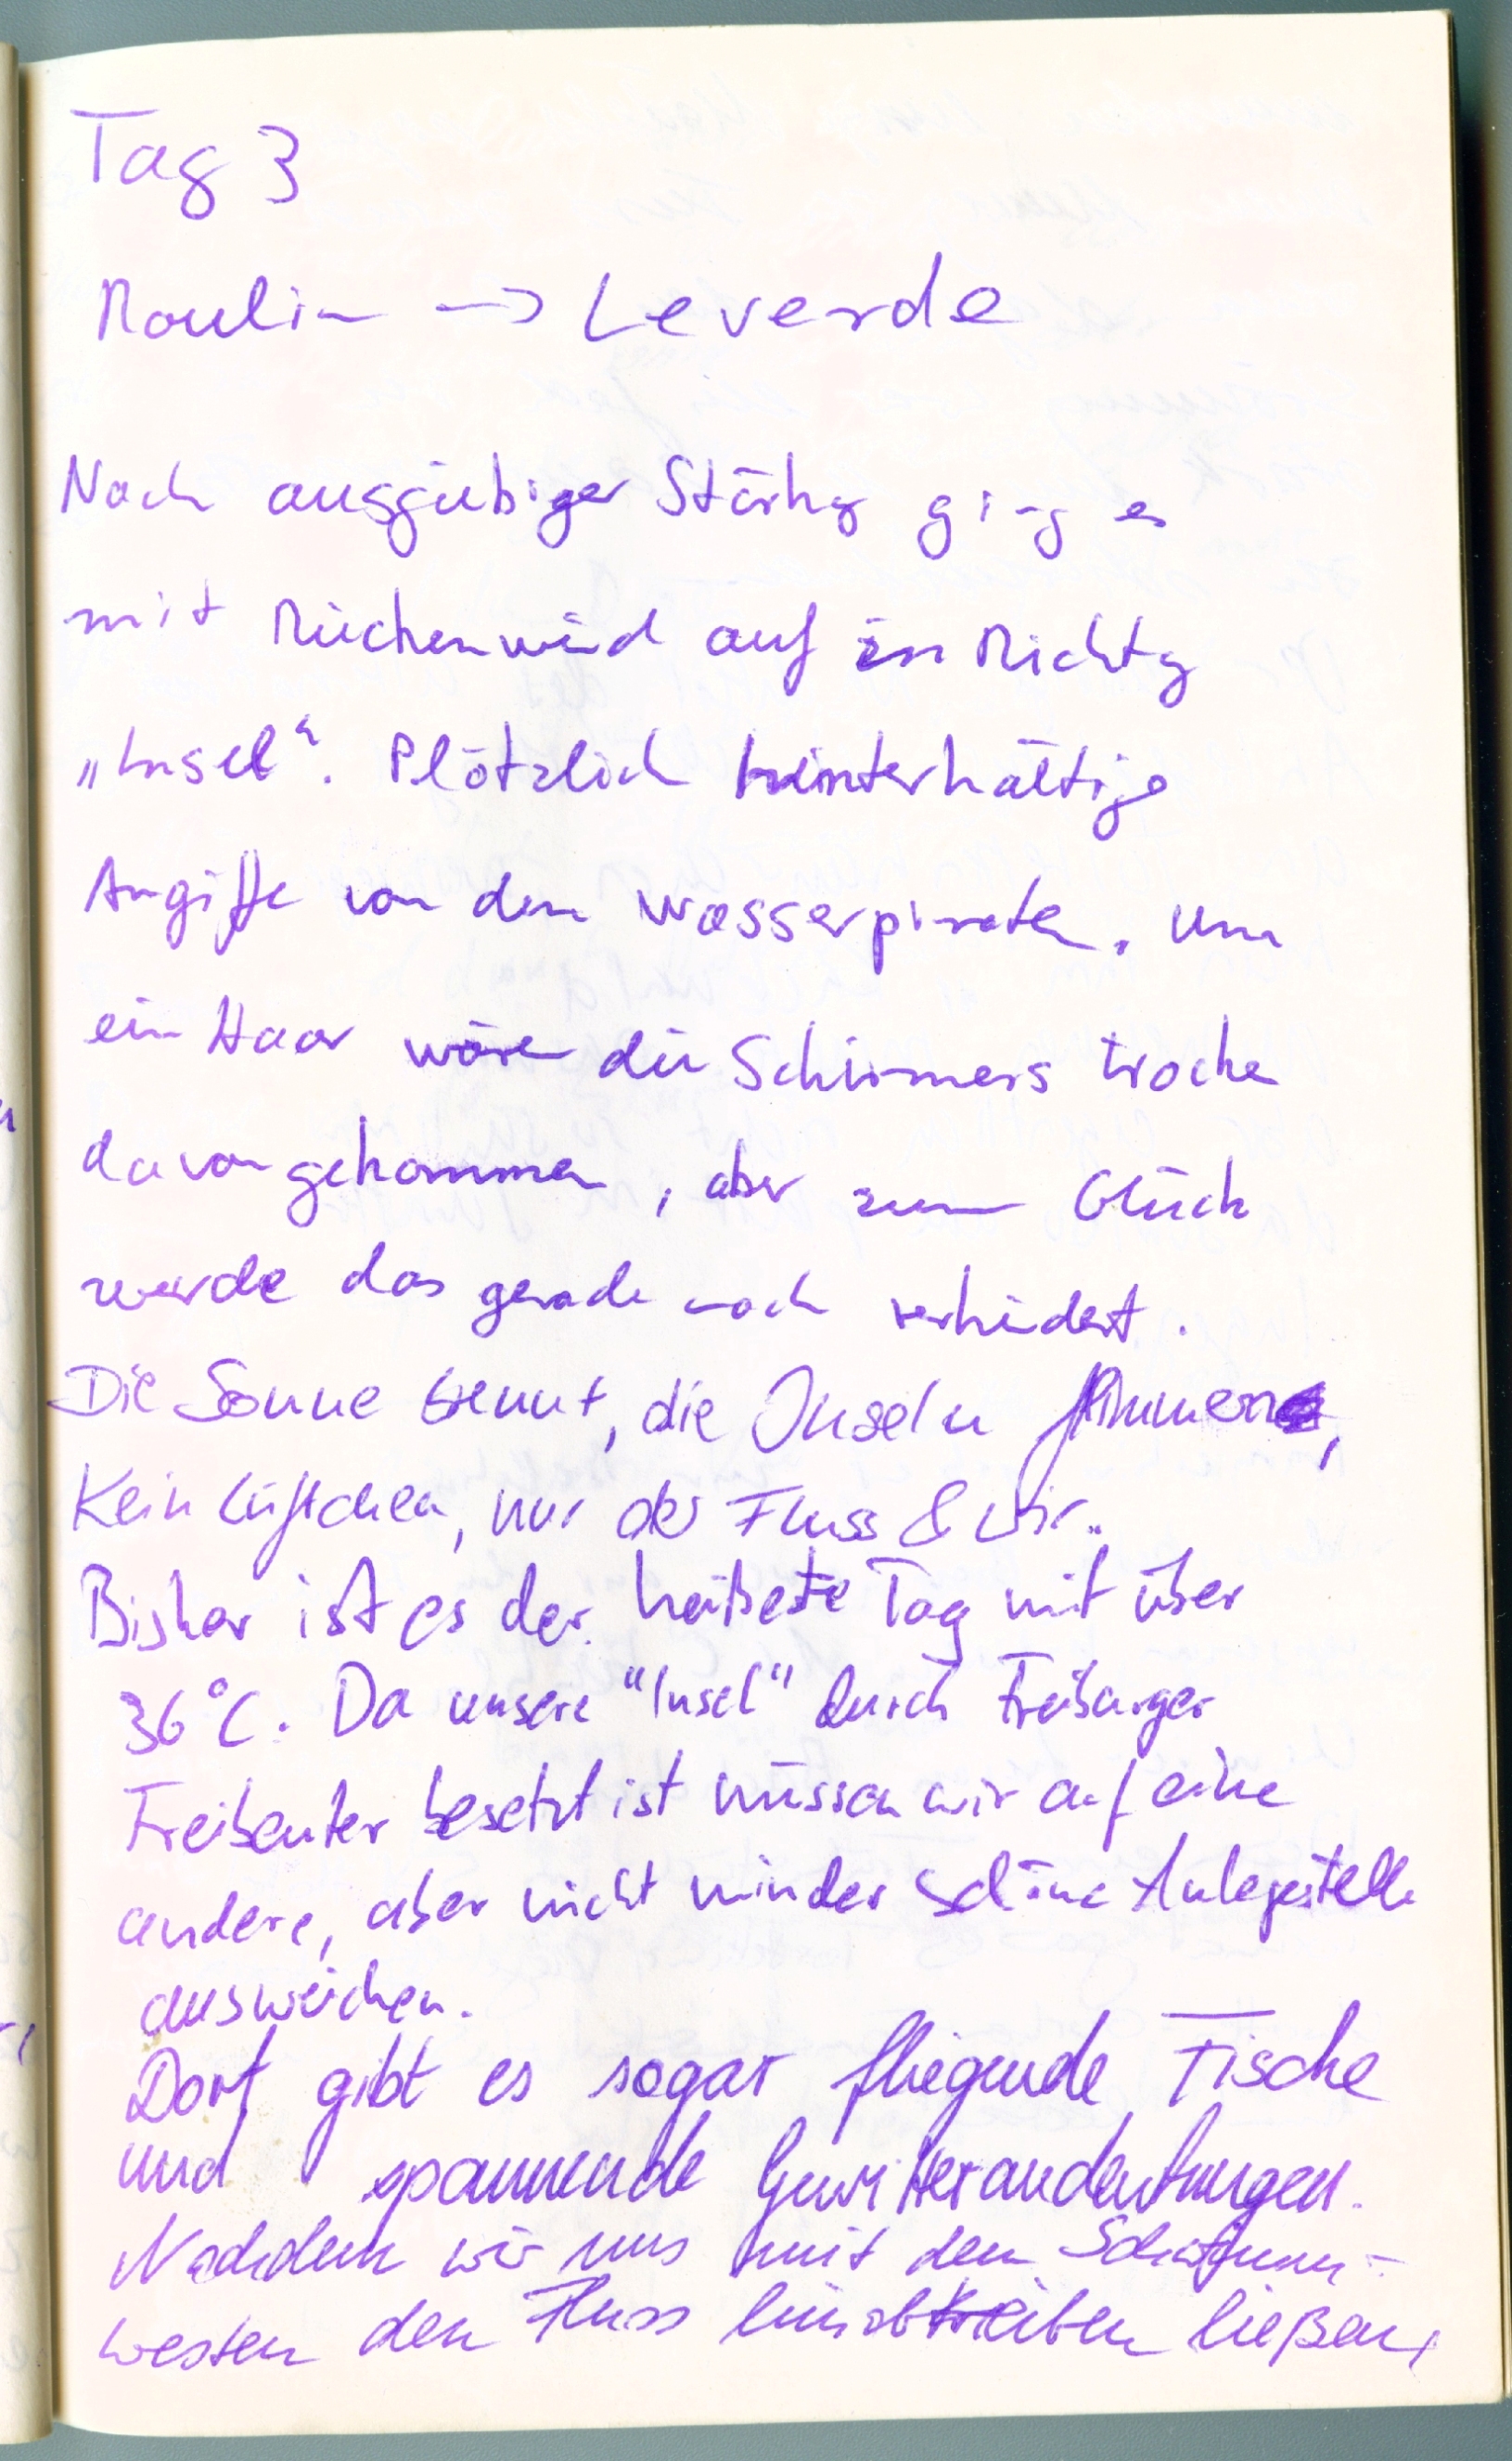 Tag 3
Moulin -> Leverde
Nach ausgiebiger Stärkg ging es
mit Rückenwind auf in Richtg
„Insel“. Plötzlich hinterhältige
Angiffe von den Wasserpiraten. Um
ein Haar wären die Schirmers trocken
davongekommen, aber zum Glück
wurde das gerade noch verhindert.
Die Sonne brennt, die Inseln flimmern,
Kein Lüftchen, nur der Fluss & wir..
Bisher ist es der heißeste Tag mit über
36°C. Da unsere "Insel" durch Freiburger
Freibeuter besetzt ist müssen wir auf eine
andere, aber nicht minder schöne Anlegestelle
ausweichen.
Dort gibt es sogar fliegende Fische
und spannende Gewitterandeutungen.
Nachdem wir uns mit den Schwimm-
westen den Fluss hinabtreiben ließen,